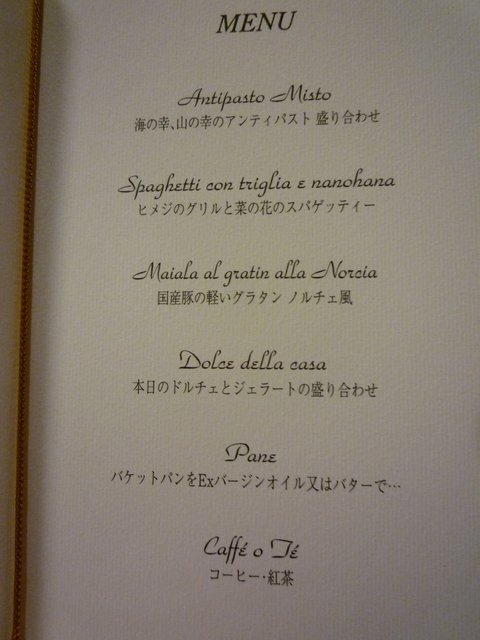 MENU
Antipasto Misto
海の幸、山の幸のアンティパスト 盛り合わせ
Spaghetti con triglia e nanohana
ヒメジのグリルと菜の花のスパゲッティー
Maiala al gratin alla Norcia
国産豚の軽いグラタン ノルチェ風
Dolce della casa
本日のドルチェとジェラートの盛り合わせ
Pane
バケットパンをExバージンオイル又はバターで…
Caffé o Té
コーヒー・紅茶